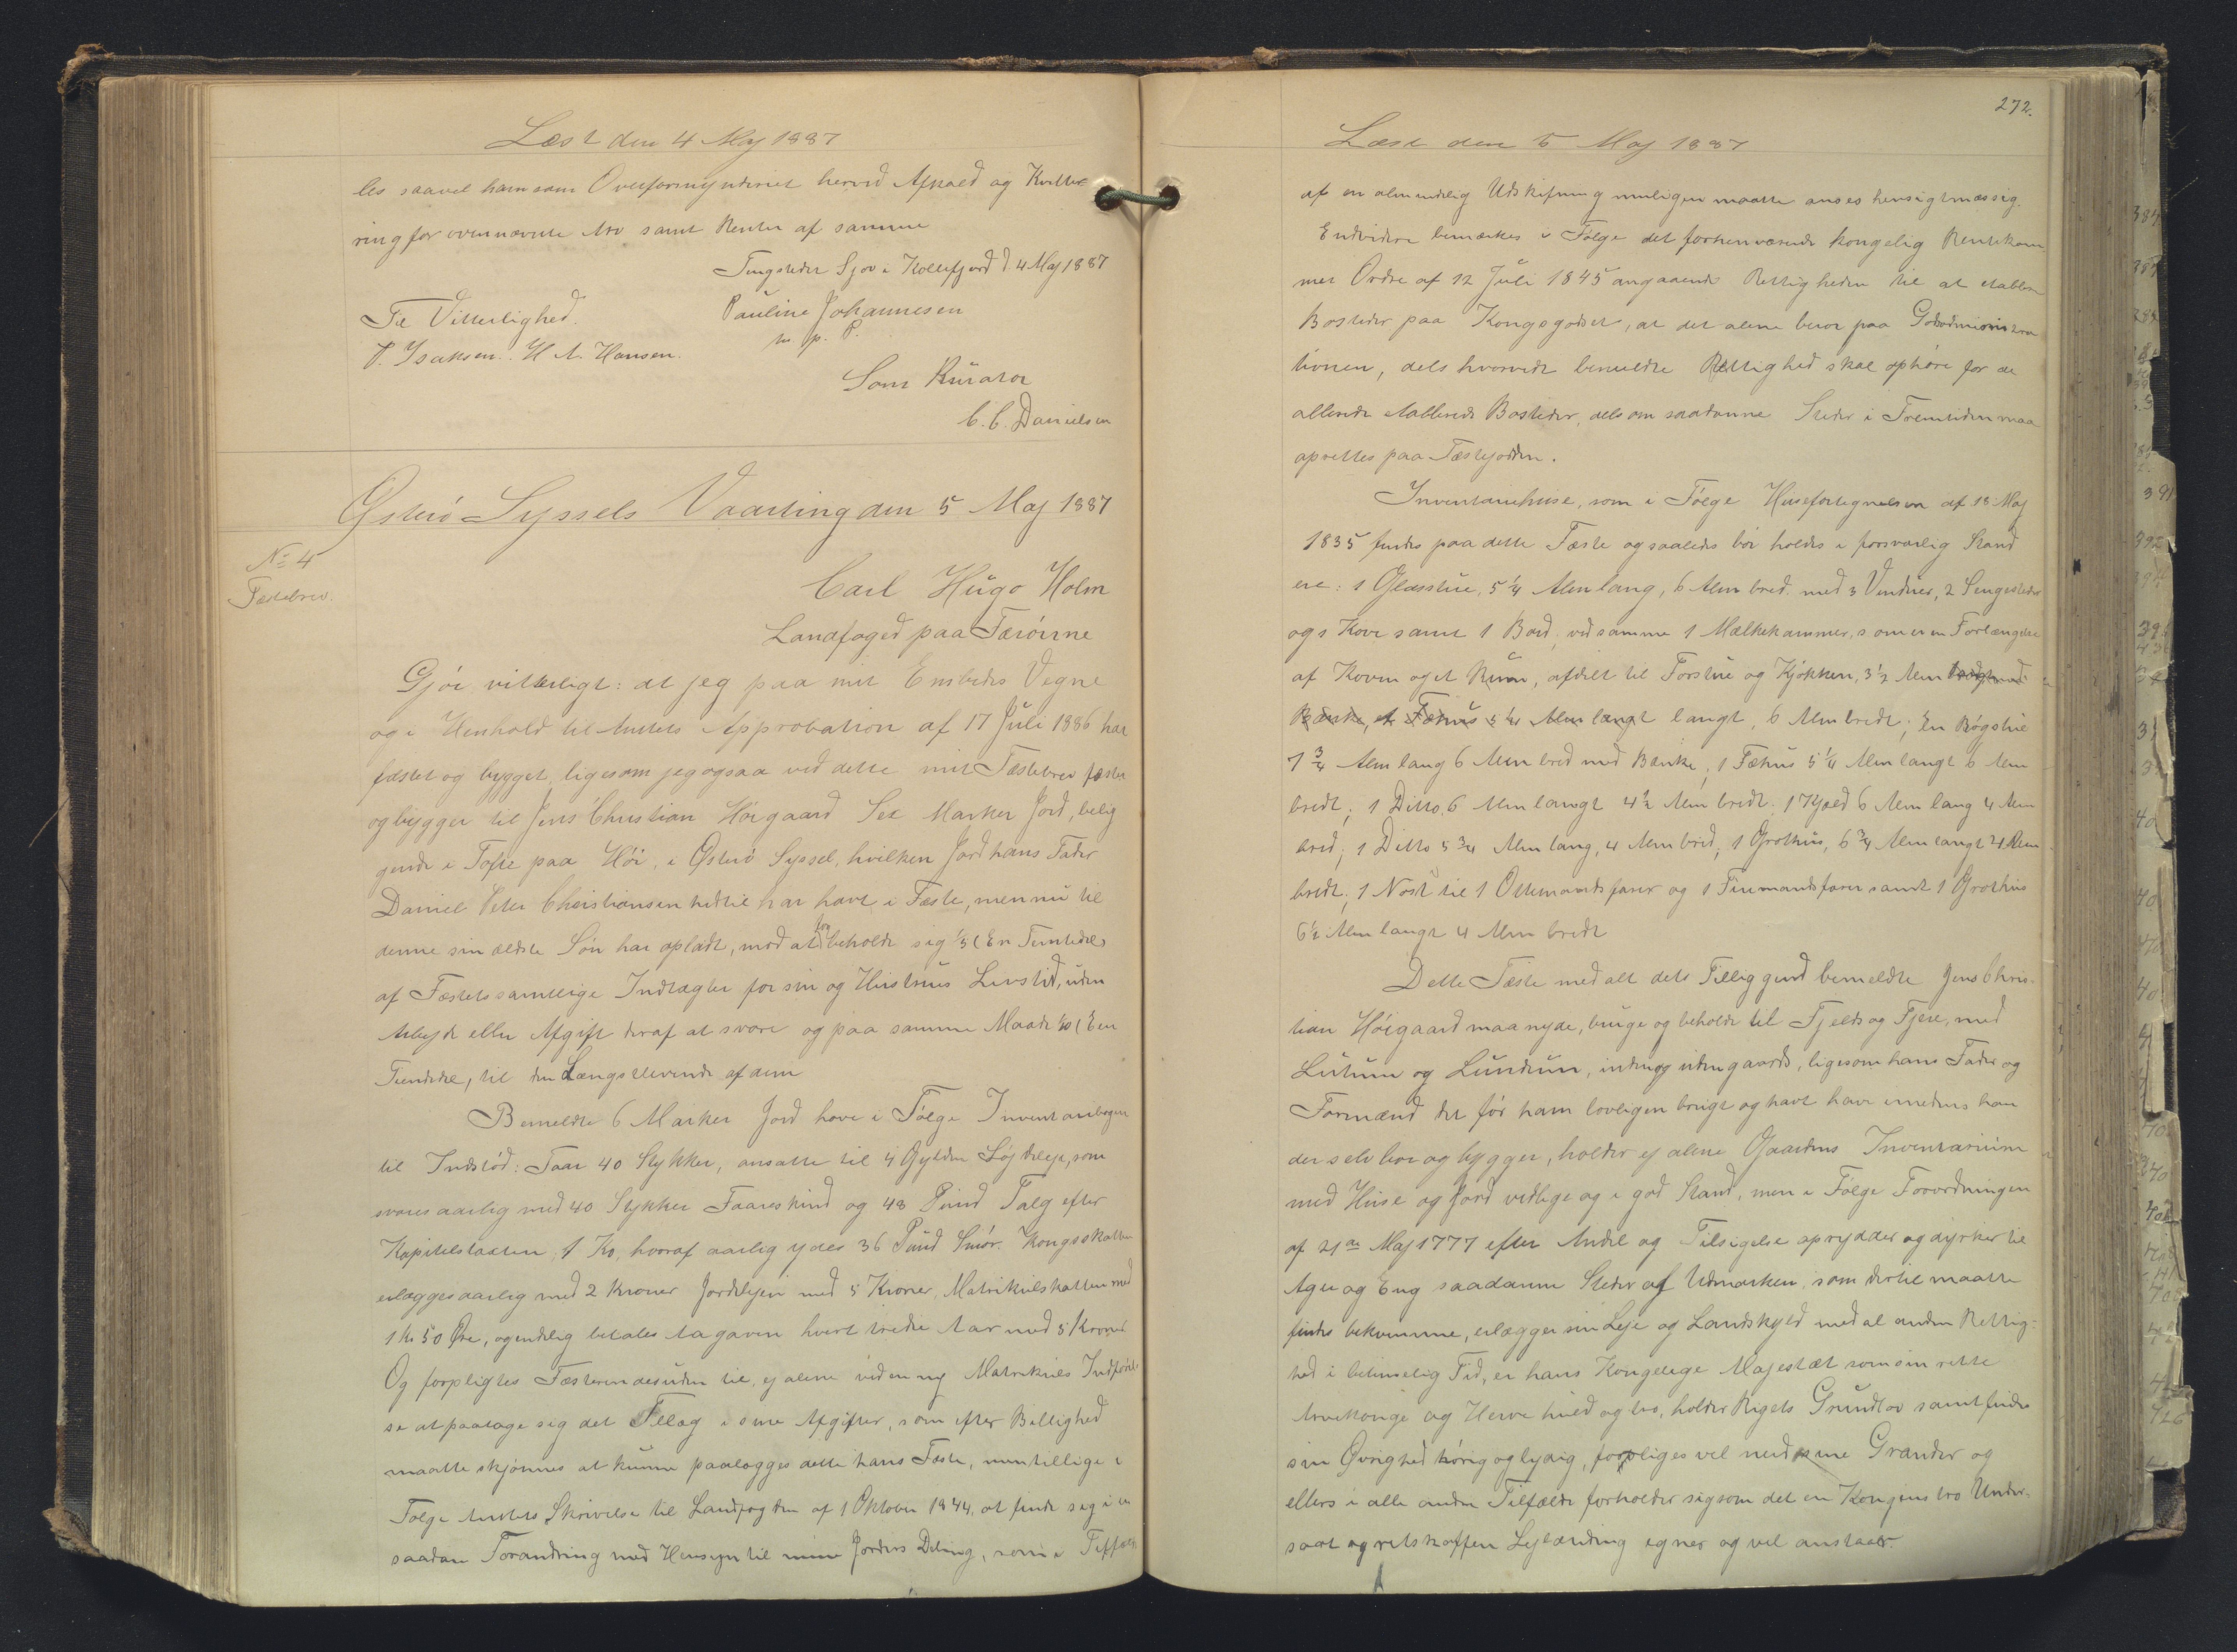 Læst den 4 Maj 1887
les saavel ham som Overformynderiet herved Afkald og Kvitte-
ring for ovennævnte Arv samt Renter af samme
Tingstedet Sjov i Kollefjord d. 4 Maj 1887
Til Vitterlighed.
Pauline Johannesen
P. Isaksen. H. A. Hansen.
m. p. P.
Som Kurator
C. C. Danielsen
Østerø Syssels Vaarting den 5 Maj 1887
No 4
Fæstebrev.
Carl Hugo Holm
Landfoged paa Færöerne
Gjör vitterligt: at jeg paa mit Embedes Vegne
og i Henhold til Amtets Approbation af 17 Juli 1886 har
fæstet og bygget, ligesom jeg ogsaa ved dette mit Fæstebrev fæster
og bygger til Jens Christian Höigaard Sex Marker Jord, belig
gende i Tofte paa Höi, i Østerö Syssel, hvilken Jord hans Fader
Daniel Peter Christiansen hidtil har havt i Fæste, men nu til
denne sin ældste Sön har opladt, mod at forbeholde sig 1/5 (En Femtedel)
af Fæstets samtlige Indtægter for sin og Hustrues Livstid, uden
Arbejde eller Afgift deraf at svare og paa samme Maade 1/10 (En
Tiendedel, til den Længstlevende af dem
Bemeldte 6 Marker Jord have i Fölge Inventaribogen
til Indstöd: Faar 40 Stykker, ansatte til 4 Gylden Löjeleje, som
svares aarlig med 40 Stykker Faareskind og 48 Pund Talg efter
Kapitelstaxten, 1 Ko, hvoraf aarlig ydes 36 Pund Smör. Kongsskatten
erlægges aarlig med 2 Kroner Jordelejen med 5 Kroner, Matrikulskatten med
1 Kr 50 Øre, og endelig betales Tagaven hvert tredie Aar med 5 Kroner
Og forpligtes Fæsteren desuden til, ej alene ved en ny Matrikuls Indförel-
se at paatage sig det Tillæg i sine Afgifter, som efter Billighed
maatte skjönnes at kunne paalægges dette hans Fæste, men tillige i
Fölge Amtets Skrivelse til Landfogden af 1 Oktober 1844, at finde sig i en
saadan Forandring med Hensyn til sine Jorders Deling, som i Tilfælde
272.
Læst den 5 Maj 1887
af en almindelig Udskiftning muligen maatte anses hensigtmæssig.
Endvidere bemærkes i Fölge det forhenværende kongelig Rentekam
mer Ordre af 12 Juli 1845 angaaende Rettigheden til at etablere
Bosteder paa Kongsgodset, at det alene beror paa Godsadministra
tionen, dels hvorvidt bemeldte Rettighed skal ophöre for de
allerede etablerede Bosteder, dels om saadanne Steder i Fremtiden maa
oprettes paa Fæstejorden.
Inventariehuse, som i Fölge Husefortegnelsen af 18 Maj
1835 findes paa dette Fæste og saaledes bör holdes i forsvarlig Stand
ere: 1 Glasstue, 5 1/4 Alen lang, 6 Alen bred med 3 Vinduer, 2 Sengesteder
og 1 Kove samt 1 Bord, ved samme 1 Mælkekammer, som er en Forlængelse
af Koven og et Rum, afdelt til Forstue og Kjökken, 3 1/2 Alen
Bænke, et Fæhus 5 1/4 Alen langt langt, 6 Alen bredt; En Rögstue
7 3/4 Alen lang 6 Alen bred med Bænke, 1 Fæhus 5 1/4 Alen langt 6 Alen
bredt; 1 Ditto 6 Alen langt 4 1/2 Alen bredt; 1 Hjeld 6 Alen lang 4 Alen
bred; 1 Ditto 5 3/4 Alen lang, 4 Alen bred; 1 Grothus, 6 3/4 Alen langt 4 Alen
bredt; 1 Nöst til 1 Ottemandsfarer og 1 Firemandsfarer samt 1 Grothus
6 1/2 Alen langt 4 Alen bredt
Dette Fæste med alt dets Tilliggende bemeldte Jens Chris-
tian Höigaard maa nyde, bruge og beholde til Fjelds og Fjere, med
Lutum og Lundum, inden og uden gaards, ligesom hans Fader og
Formænd det för ham lovligen brugt og havt have imedens han
der selv bor og bygger, holder ej alene Gaardens Inventarium
med Huse og Jord vedlige og i god Stand, men i Fölge Forordningen
af 21de Maj 1777 efter Andel og Tilsigelse oprydder og dyrker til
Ager og Eng saadanne Steder af Udmarken, som dertil maatte
findes bekvemme, erlægger sin Leje og Landskyld med al anden Rettig-
hed i betimelig Tid, er hans Kongelige Majestæt som sin rette
Arvekonge og Herre huld og tro, holder Rigets Grundlov samt findes
sin Øvrighed hörig og lydig, forliges vel med sine Grander og
ellers i alle andre Tilfælde forholder sig som det en Kongens tro Under-
saat og retskaffen Leilænding egner og vel anstaar.